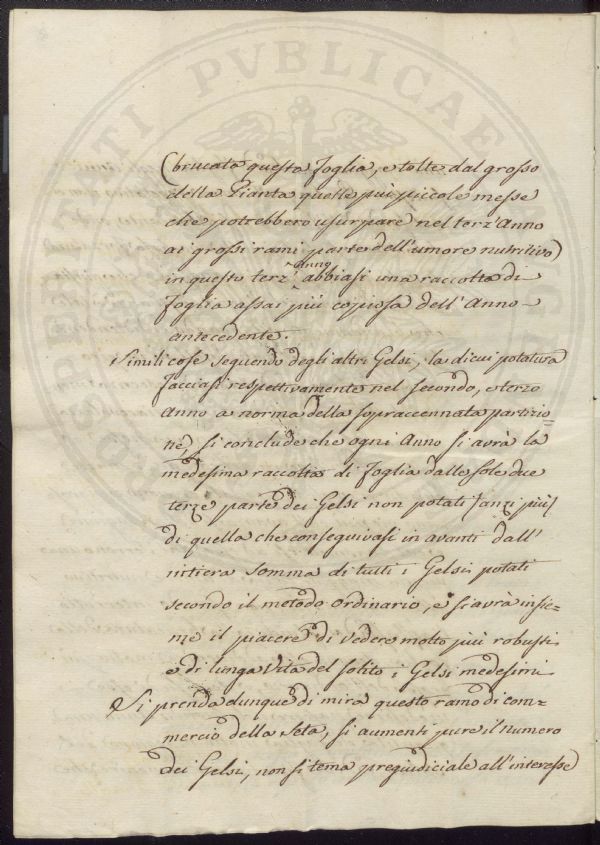 (brucata questa foglia, e tolte dal grosso
della Pianta quelle più piccole messe
che potrebbero usurpare nel terz'Anno
ai grossi rami parte dell'umore nutritivo)
in questo terz'Anno abbiasi una raccolta di
foglia assai più copiosa dell'Anno
antecedente.
Simili cose seguendo degli altri Gelsi, la di cui potatura
facciasi respettivamente nel secondo, e terzo
Anno a norma della sopraccennata partizio=
ne, si conclude che ogni Anno si avrà la
medesima raccolta di foglia dalle sole due
terze parte dei Gelsi non potati /anzi più/
di quella che conseguivasi in avanti dall'
intiera somma di tutti i Gelsi potati
secondo il metodo ordinario, e si avrà insie=
me il piacere di vedere molto più robusti
e di lunga vita del solito i Gelsi medesimi
Si prenda dunque di mira questo ramo di com=
mercio della Seta, si aumenti pure il numero
dei Gelsi, non si tema pregiudiciale all'interesse
PVBLICAE